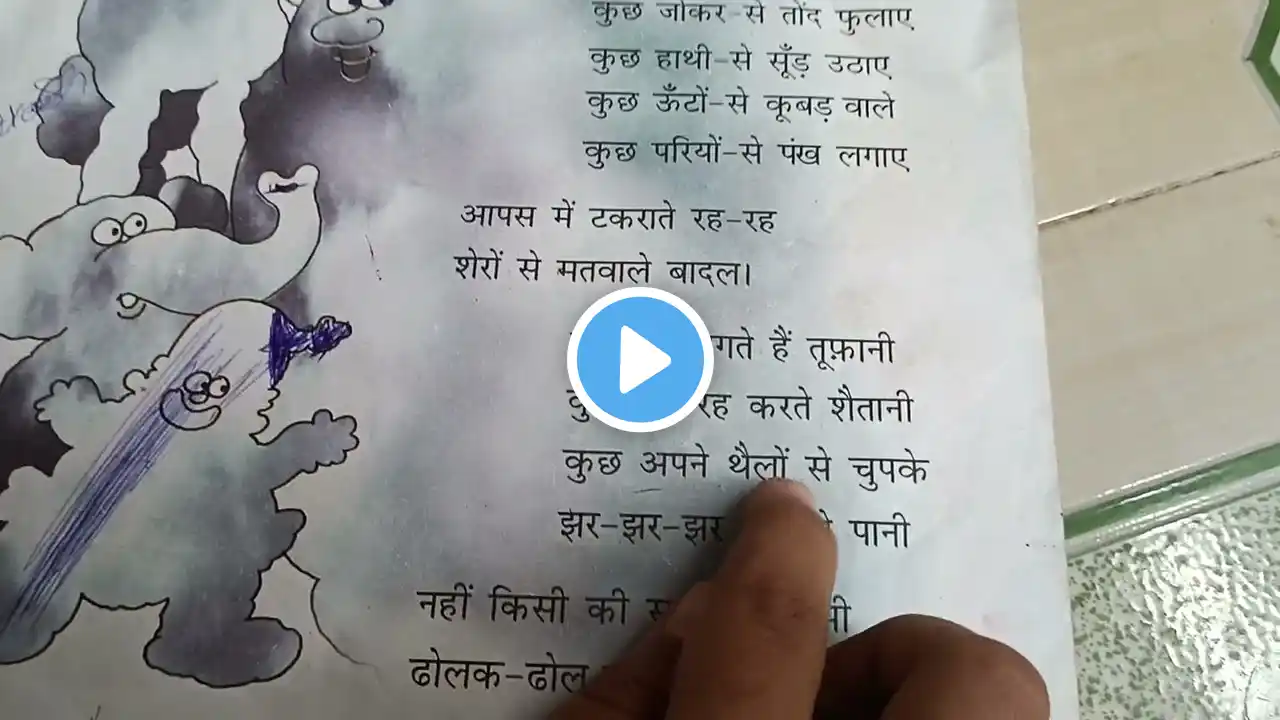 कुछ जोकर-से तोंद फुलाए
कुछ हाथी-से सूँड़ उठाए
कुछ ऊँटों-से कूबड़ वाले
कुछ परियों-से पंख लगाए
आपस में टकराते रह-रह
शेरों से मतवाले बादल।
हैं तूफ़ानी
करते शैतानी
कुछ अपने थैलों से चुपके
झर-झर-झर पानी
नहीं किसी की
ढोलक-ढोल